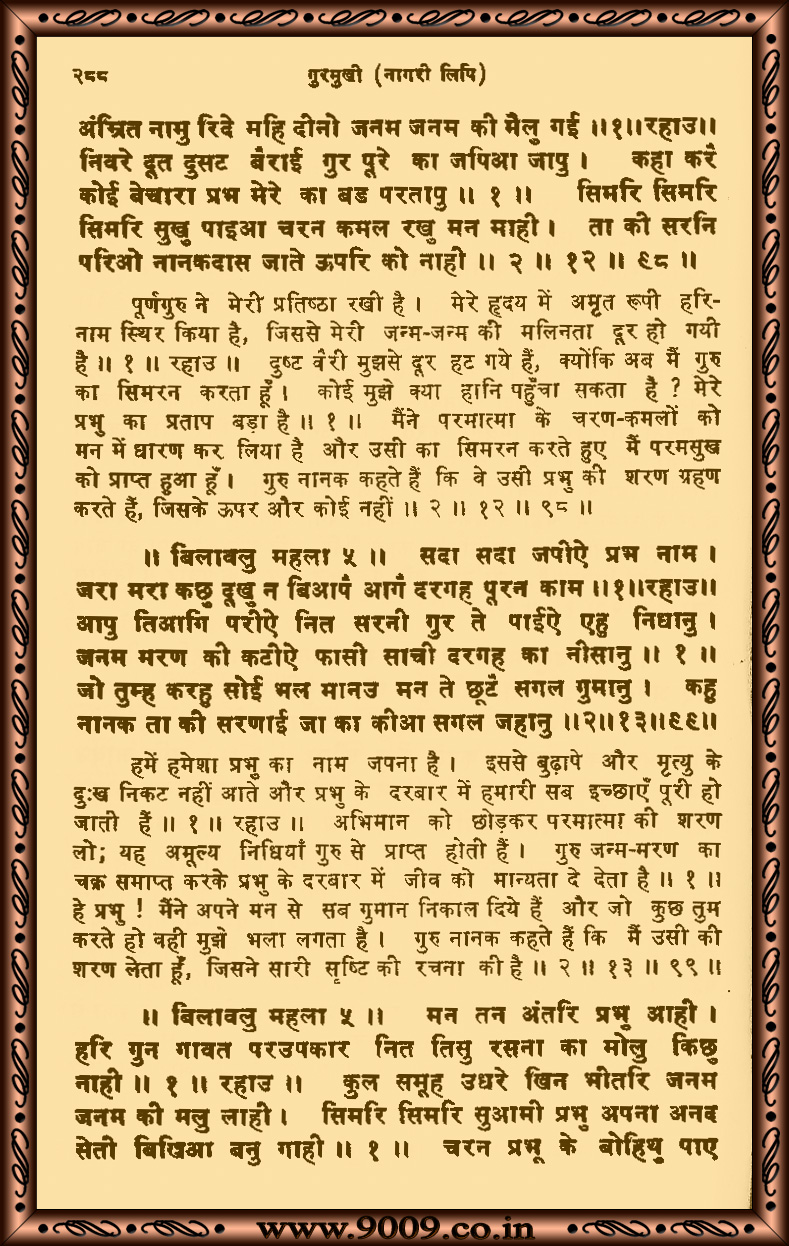 २८८ गुरमुखी (नागरी लिपि)
अंम्रित नामु रिदे महि दीनो जनम जनम की मैलु गई ॥१॥रहाउ॥
निवरे दूत दुसट बैराई गुर पूरे का जपिआ जापु । कहा करै
कोई बेचारा प्रभ मेरे का बड परतापु ॥ १ ॥ सिमरि सिमरि
सिमरि सुखु पाइआ चरन कमल रखु मन माही । ता की सरनि
परिओ नानकदास जाते ऊपरि को नाही ॥ २ ॥ १२ ॥ ९८ ॥
पूर्णगुरु ने मेरी प्रतिष्ठा रखी है । मेरे हृदय में अमृत रूपी हरि-
नाम स्थिर किया है, जिससे मेरी जन्म-जन्म की मलिनता दूर हो गयी
है ॥ १ ॥ रहाउ ॥ दुष्ट वैरी मुझसे दूर हट गये हैं, क्योंकि अब मैं गुरु
का सिमरन करता हूँ । कोई मुझे क्या हानि पहुँचा सकता है ? मेरे
प्रभु का प्रताप बड़ा है ॥ १ ॥ मैंने परमात्मा के चरण-कमलों को
मन में धारण कर लिया है और उसी का सिमरन करते हुए मैं परमसुख
को प्राप्त हुआ हूँ । गुरु नानक कहते हैं कि वे उसी प्रभु की शरण ग्रहण
करते हैं, जिसके ऊपर और कोई नहीं ॥ २ ॥ १२ ॥ ९८ ॥
॥ बिलावलु महला ५ ॥ सदा सदा जपीऐ प्रभ नाम ।
जरा मरा कछु दूखु न बिआपै आगै दरगह पूरन काम ॥१॥रहाउ॥
आपु तिआगि परीऐ नित सरनी गुर ते पाईऐ एहु निधानु ।
जनम मरण की कटीऐ फासी साची दरगह का नीसानु ॥ १ ॥
जो तुम्ह करहु सोई भल मानउ मन ते छूटै सगल गुमानु । कहु
नानक ता की सरणाई जा का कीआ सगल जहानु ॥२॥१३॥९९॥
हमें हमेशा प्रभु का नाम जपना है । इससे बुढ़ापे और मृत्यु के
दुःख निकट नहीं आते और प्रभु के दरबार में हमारी सब इच्छाएँ पूरी हो
जाती हैं ॥ १ ॥ रहाउ ॥ अभिमान को छोड़कर परमात्मा की शरण
लो; यह अमूल्य निधियाँ गुरु से प्राप्त होती हैं । गुरु जन्म-मरण का
चक्र समाप्त करके प्रभु के दरबार में जीव को मान्यता दे देता है ॥ १ ॥
हे प्रभु ! मैंने अपने मन से सब गुमान निकाल दिये हैं और जो कुछ तुम
करते हो वही मुझे भला लगता है । गुरु नानक कहते हैं कि मैं उसी की
शरण लेता हूँ, जिसने सारी सृष्टि की रचना की है ॥ २ ॥ १३ ॥ ९९ ॥
॥ बिलावलु महला ५ ॥ मन तन अंतरि प्रभु आही ।
हरि गुन गावत परउपकार नित तिसु रसना का मोलु किछु
नाही ॥ १ ॥ रहाउ ॥ कुल समूह उधरे खिन भीतरि जनम
जनम की मलु लाही । सिमरि सिमरि सुआमी प्रभु अपना अनद
सेती बिखिआ बनु गाही ॥ १ ॥ चरन प्रभू के बोहिथु पाए
www.9009.co.in